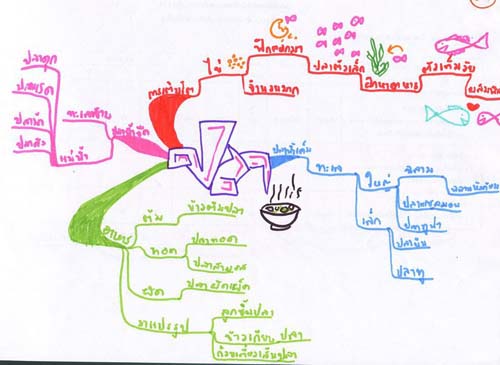 ปลา
การเติบโต
ไข่
จำนวนมาก
ฟักออกมา
ปลาตัวเล็ก
ตัวเต็มวัย
ปลาน้ำจืด
ทะเลสาบ
แม่น้ำ
ปลาดุก
ปลาแรด
ปลาน้ำเค็ม
ทะเล
ใหญ่
ฉลาม
ปลาแซลมอน
ปลาทูน่า
เล็ก
ปลาทู
อาหาร
ต้ม
ข้าวต้มปลา
ทอด
ปลาทอด
ปลาสามรส
ผัด
ปลาผัดเผ็ด
การแปรรูป
ลูกชิ้นปลา
ข้าวเกรียบ ปลา
ก๋วยเตี๋ยวเส้นปลา